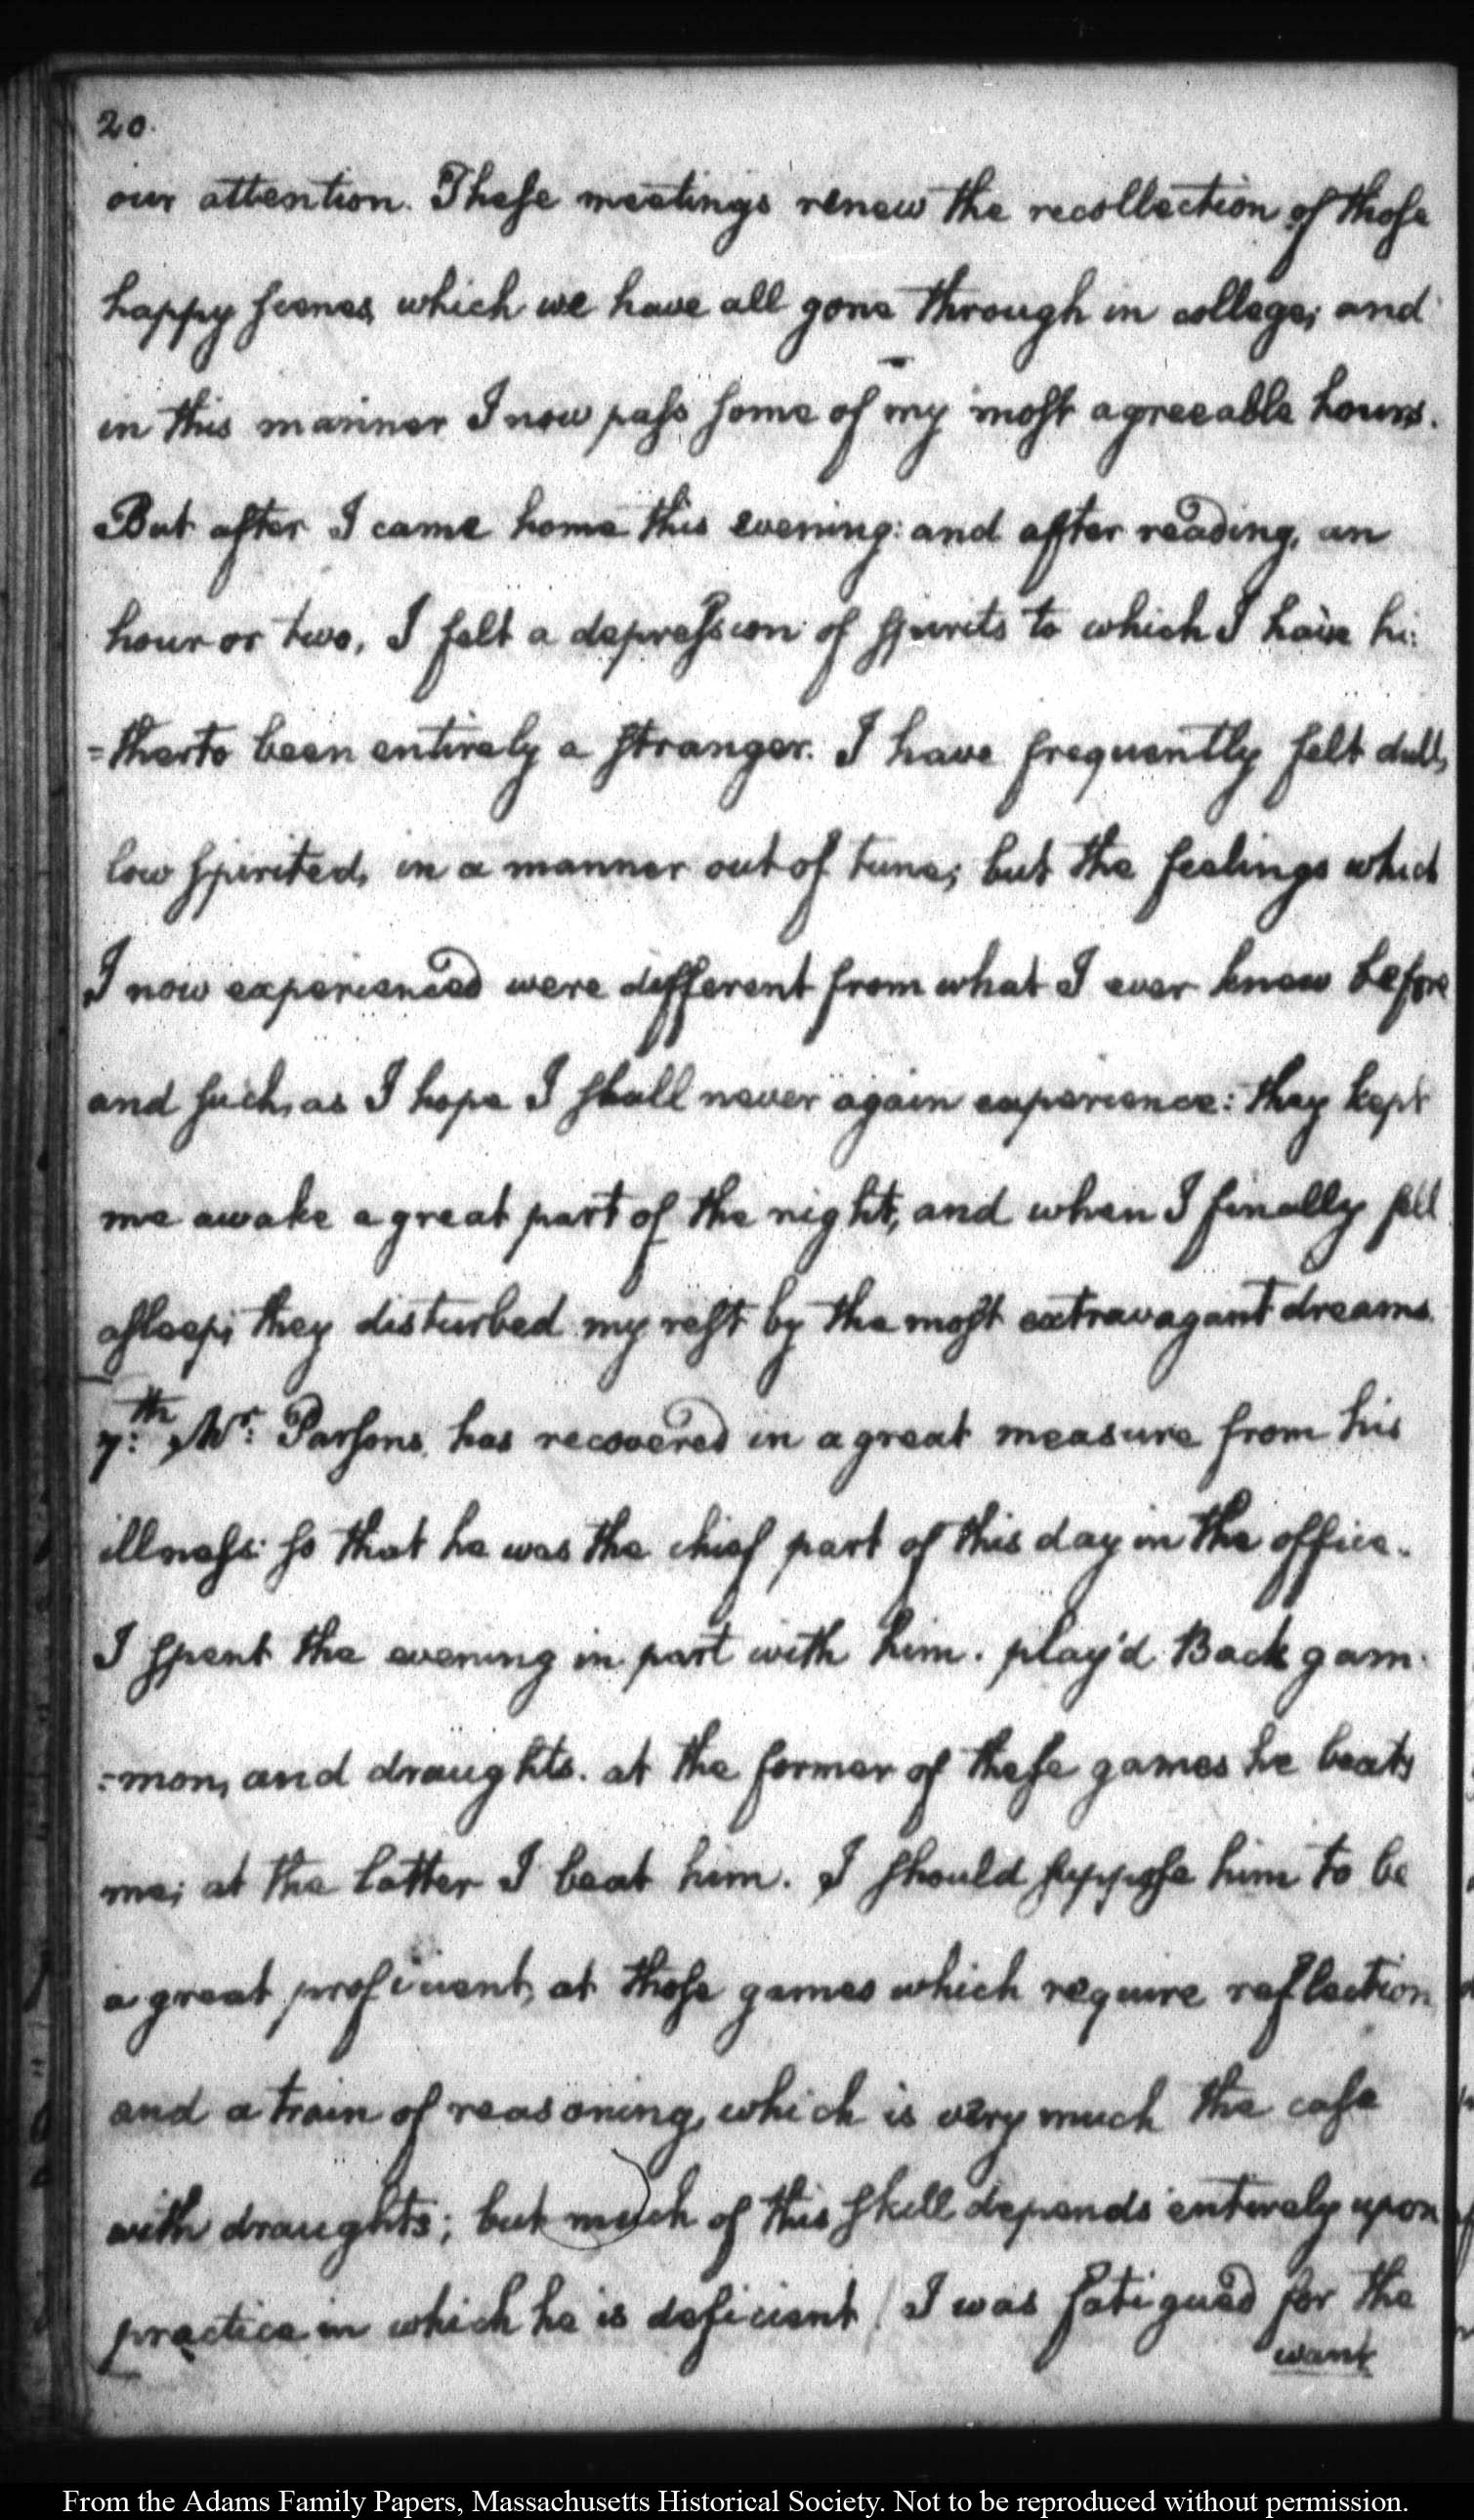 20.
our attention. These meetings renew the recollection of those
happy scenes, which we have all gone through in college; and
in this manner I now pass some of my most agreeable hours.
But after I came home this evening: and after reading, an
hour or two, I felt a depression of spirits to which I have hi:
=therto been entirely a stranger. I have frequently felt dull,
low spirited, in a manner out of tune; but the feelings which
I now experienced were different from what I ever knew before
and such, as I hope I shall never again experience: they kept
me awake a great part of the night, and when I finally fell
asleep; they disturbed my rest by the most extravagant dreams.
7:th Mr: Parsons, has recovered in a great measure from his
illness: so that he was the chief part of this day in the office.
I spent the evening in part with him. play'd Back gam-
=mon, and draughts. at the former of these games he beats
me; at the latter I beat him. I should suppose him to be
a great proficient, at those games which require reflection
and a train of reasoning, which is very much the case
with draughts; but much of this skill depends entirely upon
practice in which he is deficient / I was fatigued for the
want
From the Adams Family Papers, Massachusetts Historical Society. Not to be reproduced without permission.